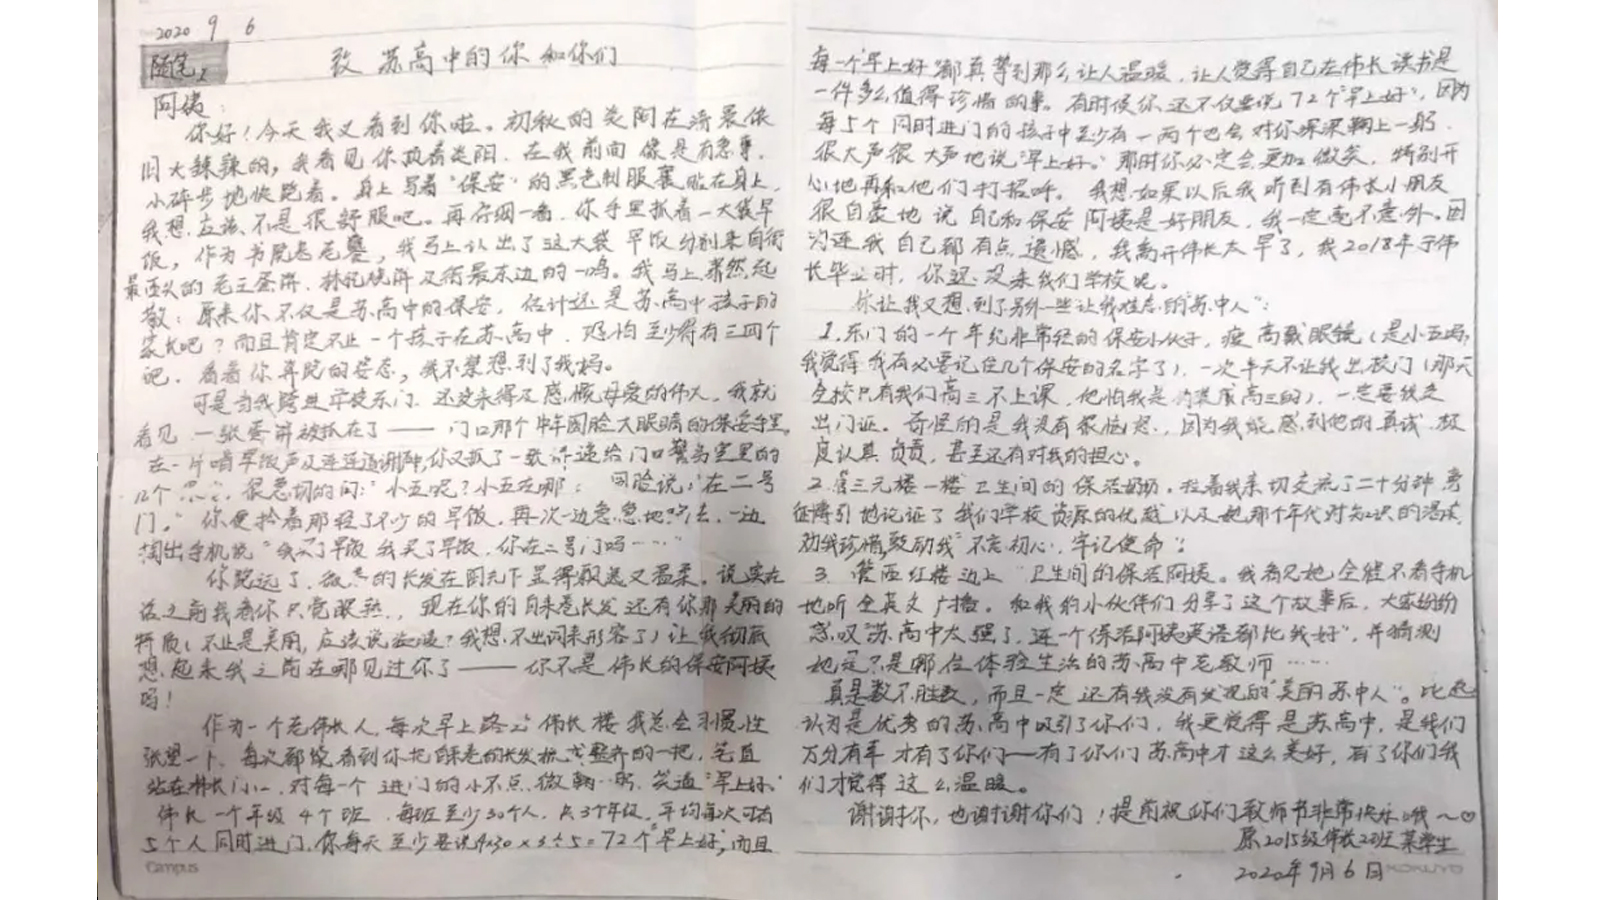 2020 9 6
随笔
致 苏高中的你和你们
阿姨:
你好!今天我又看到你啦。初秋的炎阳在清晨依
旧火辣辣的,我看见你顶着炎阳,在我前面像是有急事,
小碎步地快跑着。身上写着"保安"的黑色制服裹贴在身上,
我想应该不是很舒服吧。再仔细一看,你手里抓着一大袋早
饭,作为书院巷老饕,我马上认出了这大袋早饭分别来自街
最西头的老王蛋饼、林记烧饼及街最东边的一鸣。我马上肃然起
敬:原来你不仅是苏高中的保安,估计还是苏高中孩子的
家长吧?而且肯定不止一个孩子在苏高中,恐怕至少得有三四个
吧。看着你奔跑的姿态,我不禁想到了我妈。
可是当我跨进学校东门,还没来得及感慨母爱的伟大,我就
看见一张蛋饼被抓在了——门口那个中年圆脸大眼睛的保安手里。
在一片 早饭声及连连道谢 ,你又抓了一 递给门口警务室里的
很急切的问:"小五呢?小五在哪? 圆脸说:"在二号
门。"你便拎着那轻了不少的早饭,再次一边急急地 去,一边
掏出手机说"我买了早饭我买了早饭,你在二号门吗……"
你跑远了, 的长发在阳光下显得飘逸又温柔。说实在
话之前我看你只觉眼熟,现在你的自来卷长发还有你那美丽的
特质(不止是美丽,应该说 ?我想不出词来形容了)让我彻底
想起来我之前在哪见过你了——你不是伟长的保安阿姨
吗!
作为一个老伟长人,每次早上路过伟长楼我总会习惯性
张望一下,每次都能看到你把自来卷的长发梳成整齐的一把,笔直
站在伟长门口,对每一个进门的小不点,微 ,笑道"早上好。"
伟长一个年级4个班,每班至少30个人,共3个年级,平均每次可有
5个人同时进门,你每天至少要说4×30×3÷5=72个"早上好",而且
每一个"早上好"都真挚到那么让人温暖,让人觉得自己在伟长读书是
一件多么值得珍惜的事。有时候你还不仅要说72个"早上好",因为
每5个同时进门的孩子中至少有一两个也会对你深深鞠上一躬,
很大声很大声地说"早上好。"那时你必定会更加微笑,特别开
心地再和他们打招呼。我想如果以后我听到有伟长小朋友
很自豪地说自己和保安阿姨是好朋友,我一定毫不意外。因
为连我自己都有点遗憾,我离开伟长太早了,我2018年于伟
长毕业时,你还没来我们学校呢。
你让我又想到了另外一些让我难忘的"苏中人":
1.东门的一个年纪非常轻的保安小伙子,瘦高戴眼镜(是小五吗,
我觉得我有必要记住几个保安的名字了),一次半天不让我出校门(那天
全校只有我们高三不上课,他怕我是伪装成高三的),一定要我交
出门证。奇怪的是我没有很恼怒,因为我能感到他的真诚、极
度认真负责,甚至还有对我的担心。
2.管三元楼一楼卫生间的保洁奶奶,拉着我亲切交流了二十分钟,旁
征博引地论证了我们学校资源的优越以及她那个年代对知识的渴求,
劝我珍惜,鼓励我"不忘初心,牢记使命"。
3.管西红楼边上 卫生间的保洁阿姨。我看见她全程不看手机
地听全英文广播。和我的小伙伴们分享了这个故事后,大家纷纷
感叹"苏高中太强了,连一个保洁阿姨英语都比我好",并猜测
她是不是哪位体验生活的苏高中老教师……
真是数不胜数,而且一定还有我没有发现的"美丽苏中人"。比起
认为是优秀的苏高中吸引了你们,我更觉得是苏高中,是我们
万分有幸才有了你们——有了你们苏高中才这么美好,有了你们我
们才觉得这么温暖。
谢谢你,也谢谢你们!提前祝你们教师节非常快乐哦~♡
原2015级伟长2班某学生
2020年9月6日
Campus
KOKUYO